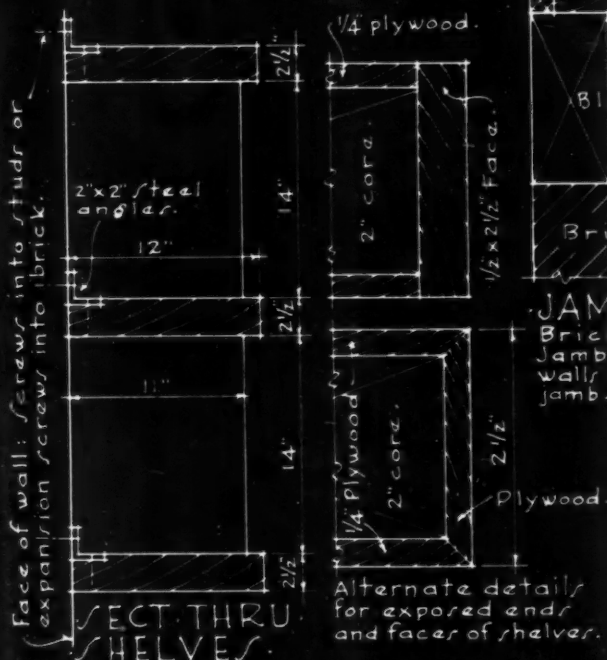 Face of wall: screws into studs or
expansion screws into brick.
2½"
14"
2"x2" steel
angles.
12"
2½"
11"
14"
2½"
SECT. THRU
SHELVES.
¼" plywood.
2" core.
½"x2½" Face.
¼" Plywood
2" core.
2½"
Plywood
Alternate details
for exposed ends
and faces of shelves.
Bl
Bri
JAM
Bric
Jamb
walls
jamb.